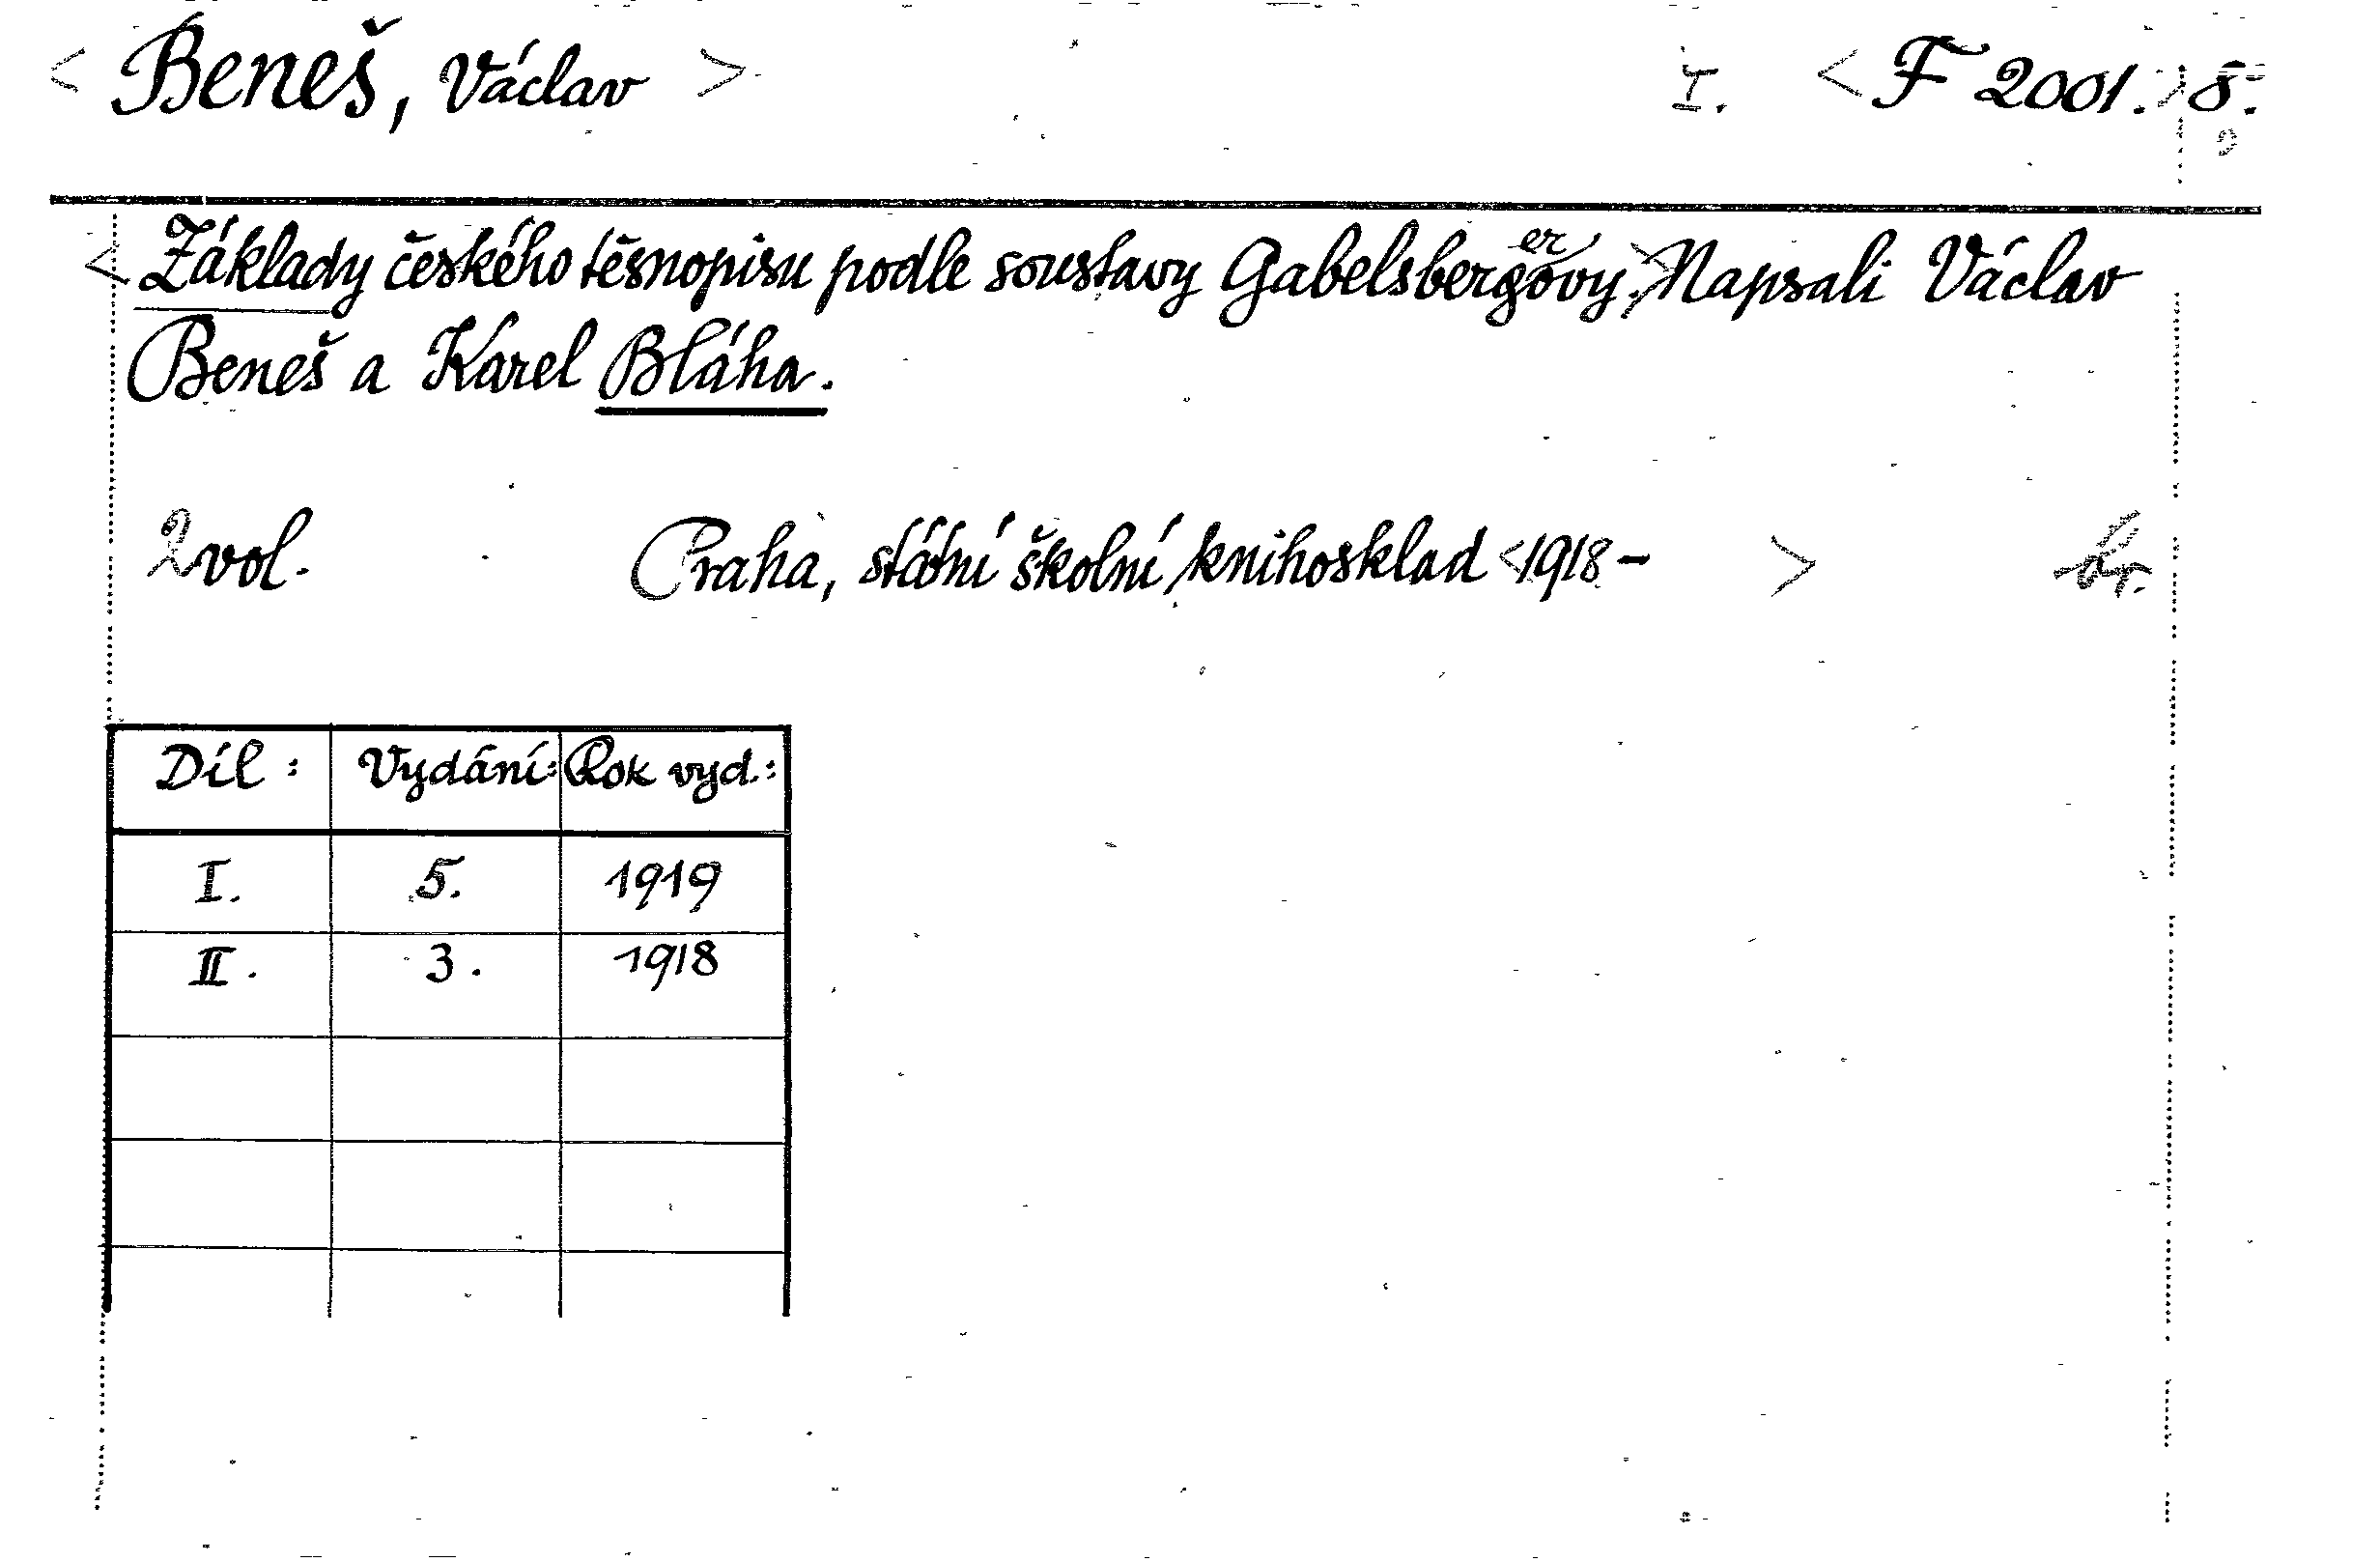 < Beneš, Václav > I. < F 2001. > 8.
< Základy českého těsnopisu podle soustavy Gabelsbergerovy. > Napsali Václav
Beneš a Karel Bláha.
2 vol. Praha, státní školní knihosklad <1918- > br.
Díl: Vydání: Rok vyd.:
I. 5. 1919
II. 3. 1918